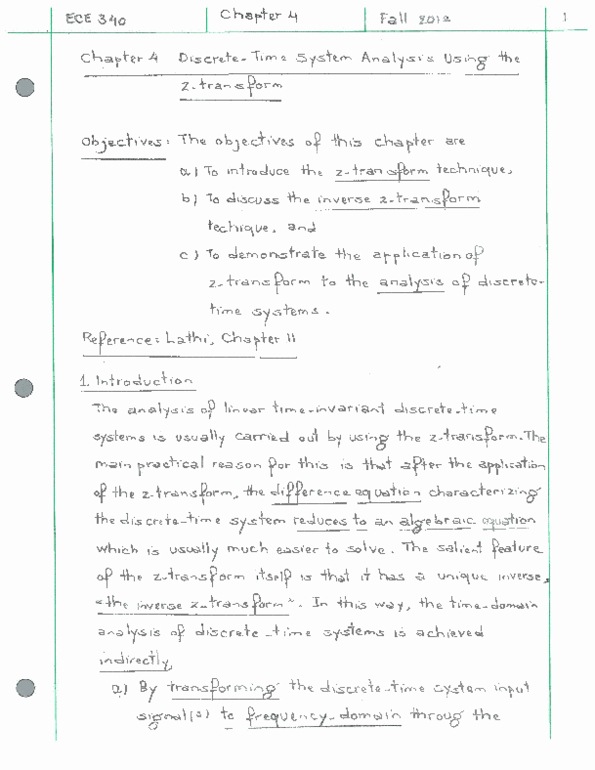 ECE 340 Chapter 4 Fall 2012 1
Chapter 4 Discrete-Time System Analysis Using the
z-transform
Objectives: The objectives of this chapter are
a) To introduce the z-transform technique,
b) To discuss the inverse z-transform
techique, and
c) To demonstrate the application of
z-transform to the analysis of discrete-
time systems.
Reference: Lathi, Chapter 11
1. Introduction
The analysis of linear time-invariant discrete-time
systems is usually carried out by using the z-transform. The
main practical reason for this is that after the application
of the z-transform, the difference equation characterizing
the discrete-time system reduces to an algebraic equation
which is usually much easier to solve. The salient feature
of the z-transform itself is that it has a unique inverse,
"the inverse z-transform". In this way, the time-domain
analysis of discrete-time systems is achieved
indirectly,
a) By transforming the discrete-time system input
signal(s) to frequency-domain throug the